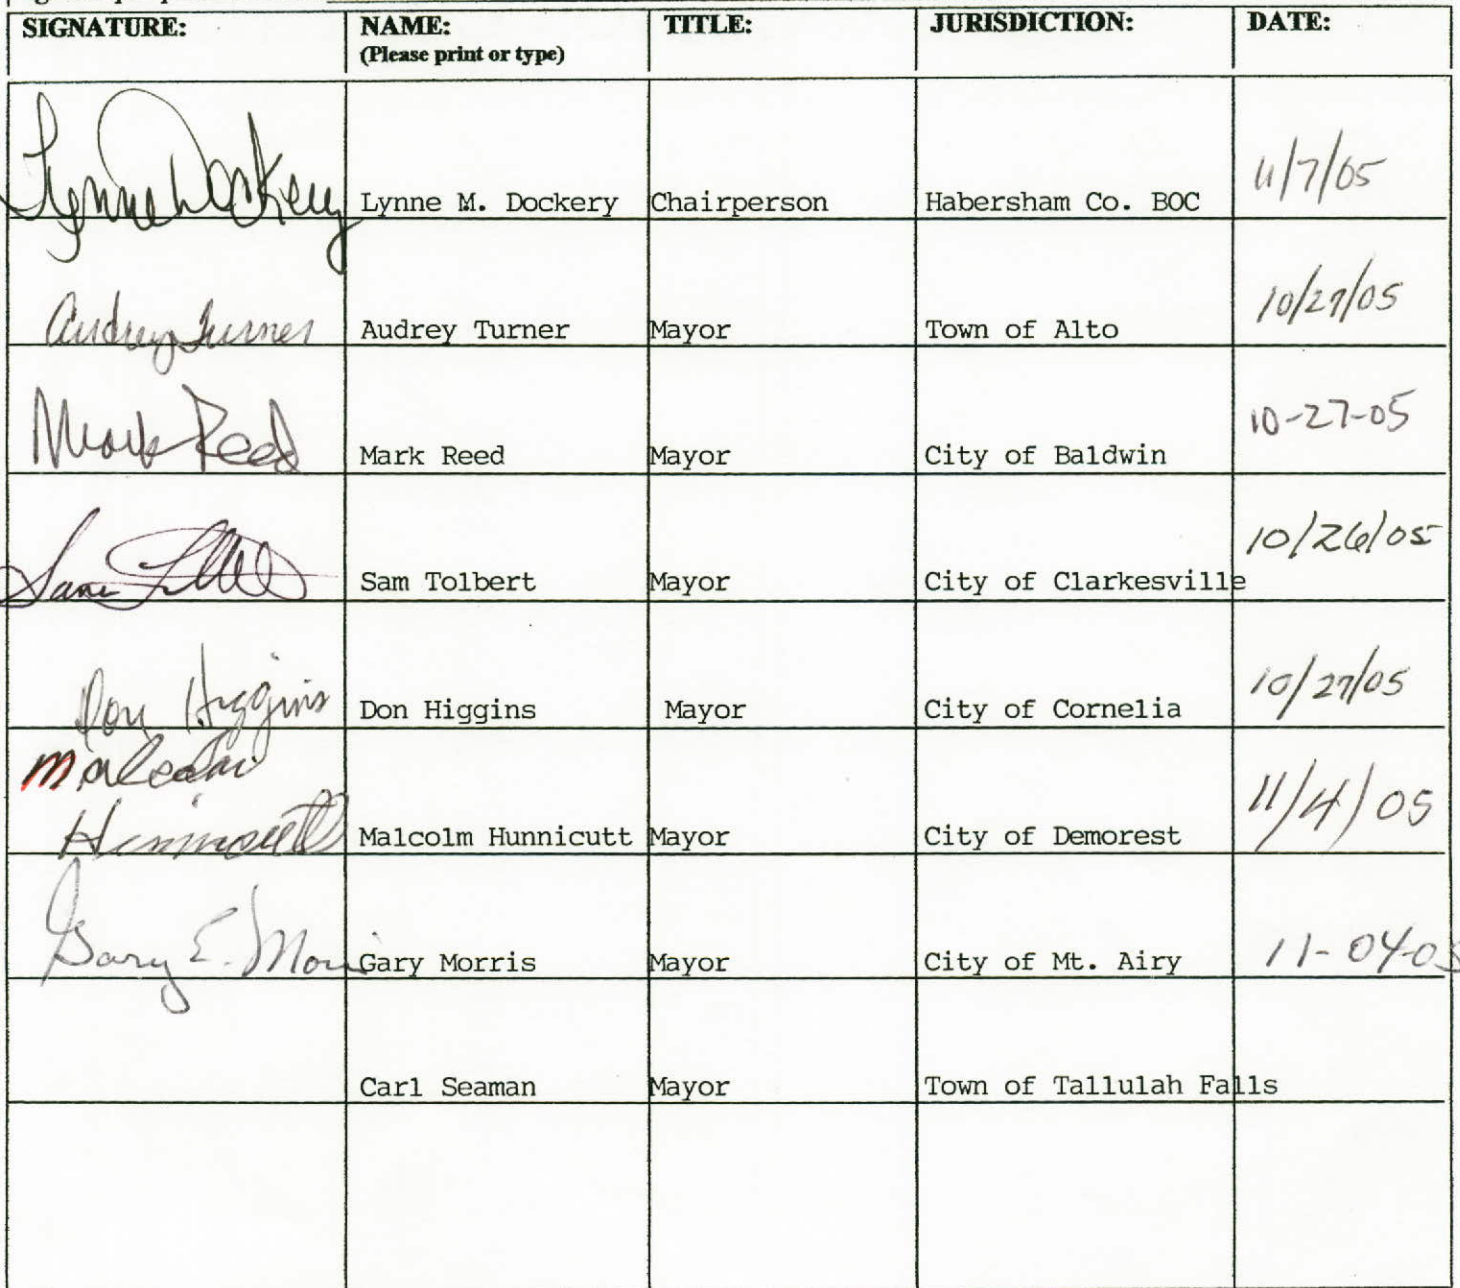 SIGNATURE: NAME: TITLE: JURISDICTION: DATE:
(Please print or type)
Lynne Dockery Lynne M. Dockery Chairperson Habersham Co. BOC 11/7/05
Audrey Turner Audrey Turner Mayor Town of Alto 10/27/05
Mark Reed Mark Reed Mayor City of Baldwin 10-27-05
Sam Tolbert Sam Tolbert Mayor City of Clarkesville 10/26/05
Don Higgins Don Higgins Mayor City of Cornelia 10/27/05
Malcolm
Hunnicutt Malcolm Hunnicutt Mayor City of Demorest 11/4/05
Gary E. Morris Gary Morris Mayor City of Mt. Airy 11-04-05
Carl Seaman Mayor Town of Tallulah Falls